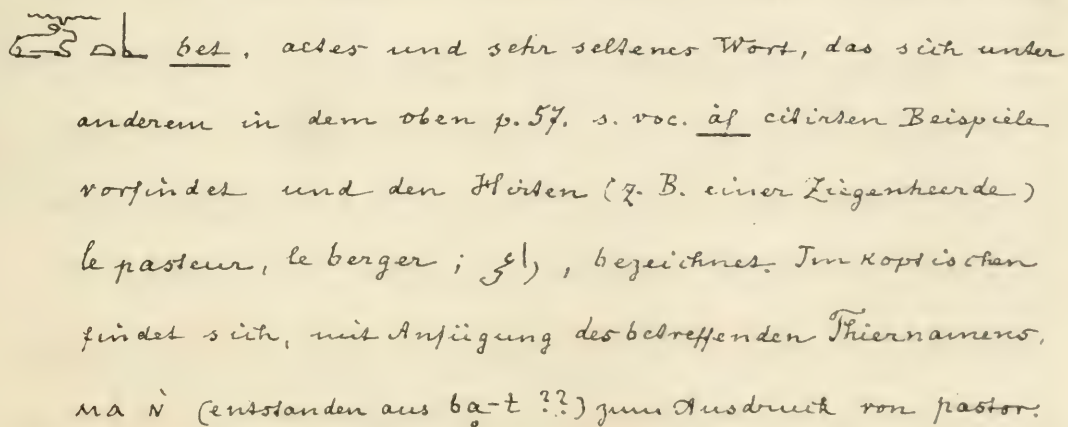 bet, altes und sehr seltenes Wort, das sich unter
anderem in dem oben p. 57. s. voc. àf citirten Beispiele
vorfindet und den Hirten (z. B. einer Ziegenheerde)
le pasteur, le berger; راع, bezeichnet. Im Koptischen
findet sich, mit Anfügung des betreffenden Thiernamens,
ⲙⲁ ⲛ̀ (entstanden aus ba-t ??) zum Ausdruck von pastor.